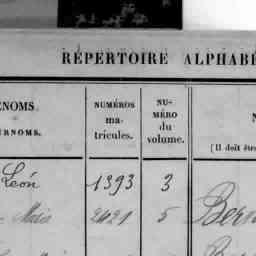 RÉPERTOIRE ALPHABÉ
ÉNOMS
URNOMS.
NUMÉROS
ma-
tricules.
NU-
MÉRO
du
volume.
N
(Il doit êtr
Léon 1393 3
2421 5 Bern